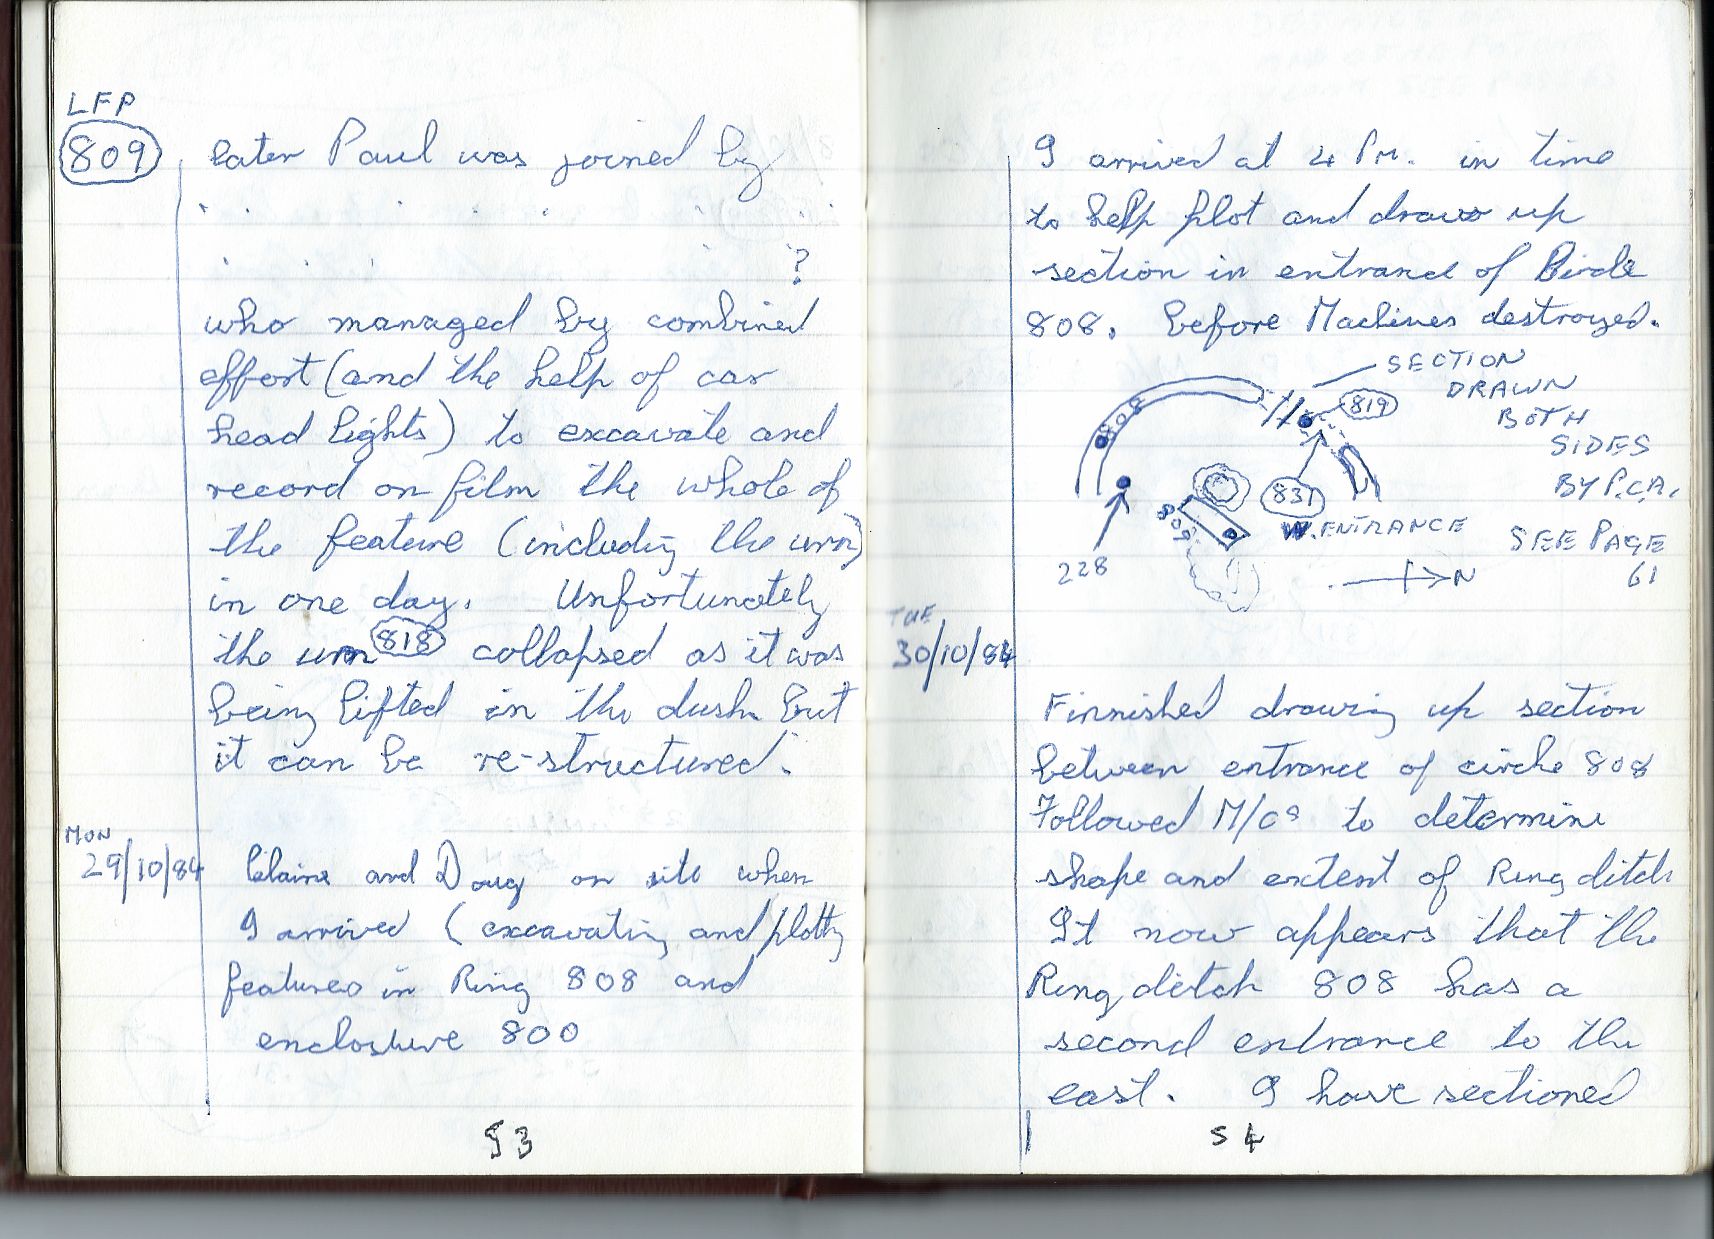 LFP
809
later Paul was joined by
. . . . . . . .
. . . ?
who managed by combined
effort (and the help of car
head lights) to excavate and
record on film the whole of
the feature (including the urn)
in one day. Unfortunately
the urn 818 collapsed as it was
being lifted in the dusk but
it can be re-structured.
MON
29/10/84
Claire and Doug on site when
I arrived (excavating and plotting
features in Ring 808 and
enclosure 800
53
I arrived at 4 PM. in time
to help plot and draw up
section in entrance of Circle
808. before Machines destroyed.
SECTION
DRAWN
BOTH
SIDES
BY P.C.A.
SEE PAGE
61
808
819
831
809
W. ENTRANCE
228
N
TUE
30/10/84
Finnished drawing up section
between entrance of circle 808
Followed M/cs to determine
shape and extent of Ring ditch
It now appears that the
Ring ditch 808 has a
second entrance to the
east. I have sectioned
54